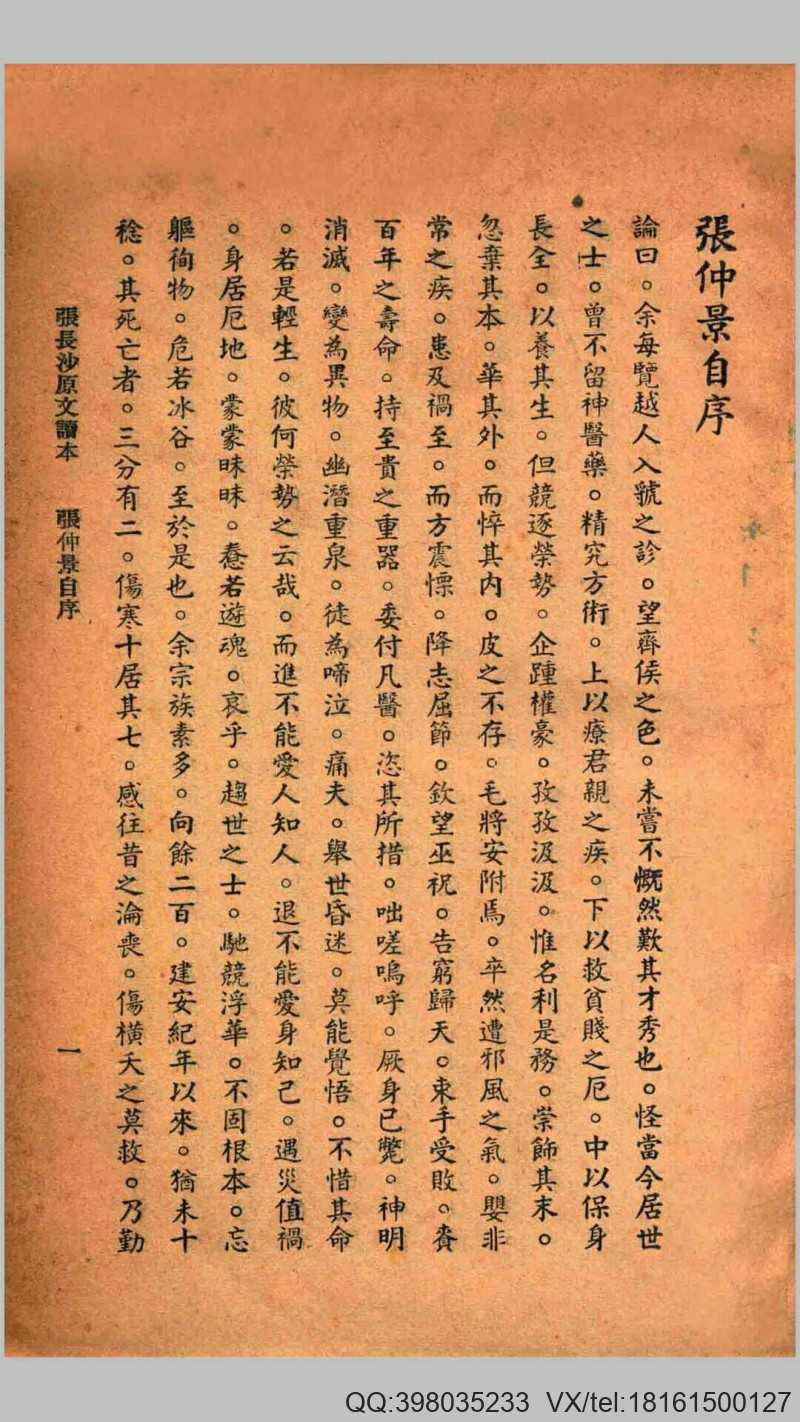 張仲景自序
論曰。余每覽越人入虢之診。望齊侯之色。未嘗不慨然歎其才秀也。怪當今居世
之士。曾不留神醫藥。精究方術。上以療君親之疾。下以救貧賤之厄。中以保身
長全。以養其生。但競逐榮勢。企踵權豪。孜孜汲汲。惟名利是務。崇飾其末。
忽棄其本。華其外。而悴其內。皮之不存。毛將安附焉。卒然遭邪風之氣。嬰非
常之疾。患及禍至。而方震慄。降志屈節。欽望巫祝。告窮歸天。束手受敗。賚
百年之壽命。持至貴之重器。委付凡醫。恣其所措。咄嗟嗚呼。厥身已斃。神明
消滅。變為異物。幽潛重泉。徒為啼泣。痛夫。舉世昏迷。莫能覺悟。不惜其命
。若是輕生。彼何榮勢之云哉。而進不能愛人知人。退不能愛身知己。遇災值禍
。身居厄地。蒙蒙昧昧。惷若遊魂。哀乎。趨世之士。馳競浮華。不固根本。忘
軀徇物。危若冰谷。至於是也。余宗族素多。向餘二百。建安紀年以來。猶未十
稔。其死亡者。三分有二。傷寒十居其七。感往昔之淪喪。傷橫夭之莫救。乃勤
張長沙原文讀本 張仲景自序 一
QQ:398035233 VX/tel:18161500127